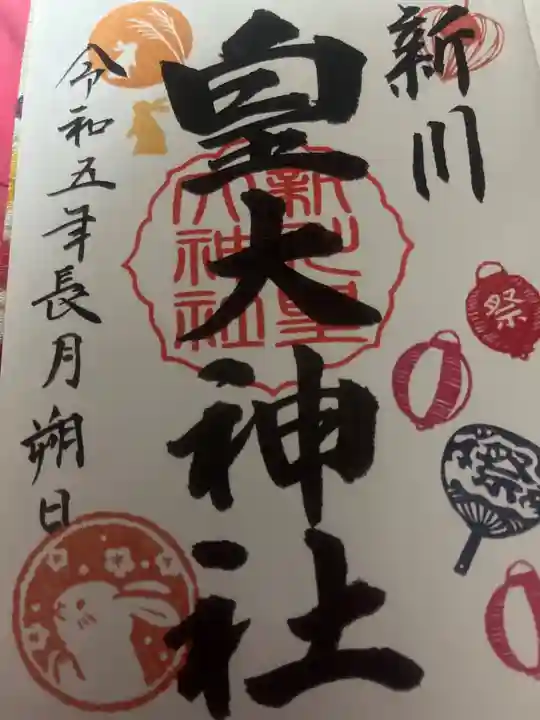 新川
皇大神社
新川皇
大神社
令和五年長月朔日
祭
祭